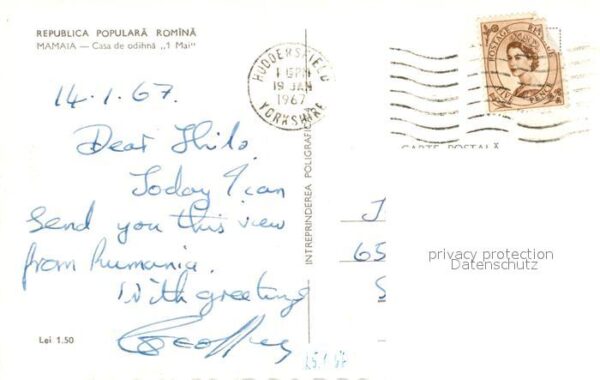 REPUBLICA POPULARĂ ROMÎNĂ
MAMAIA — Casa de odihnă „1 Mai"
HUDDERSFIELD
1 15 PM
19 JAN
1967
YORKSHIRE
POSTAGE REVENUE
FIVE PENCE
14.1.67.
Dear Thilo,
Today I can
send you this view
from Rumania.
With greetings
Geoffrey
Lei 1.50
ÎNTREPRINDEREA POLIGRAFICĂ
CARTE POSTALĂ
J
65
S
privacy protection
Datenschutz